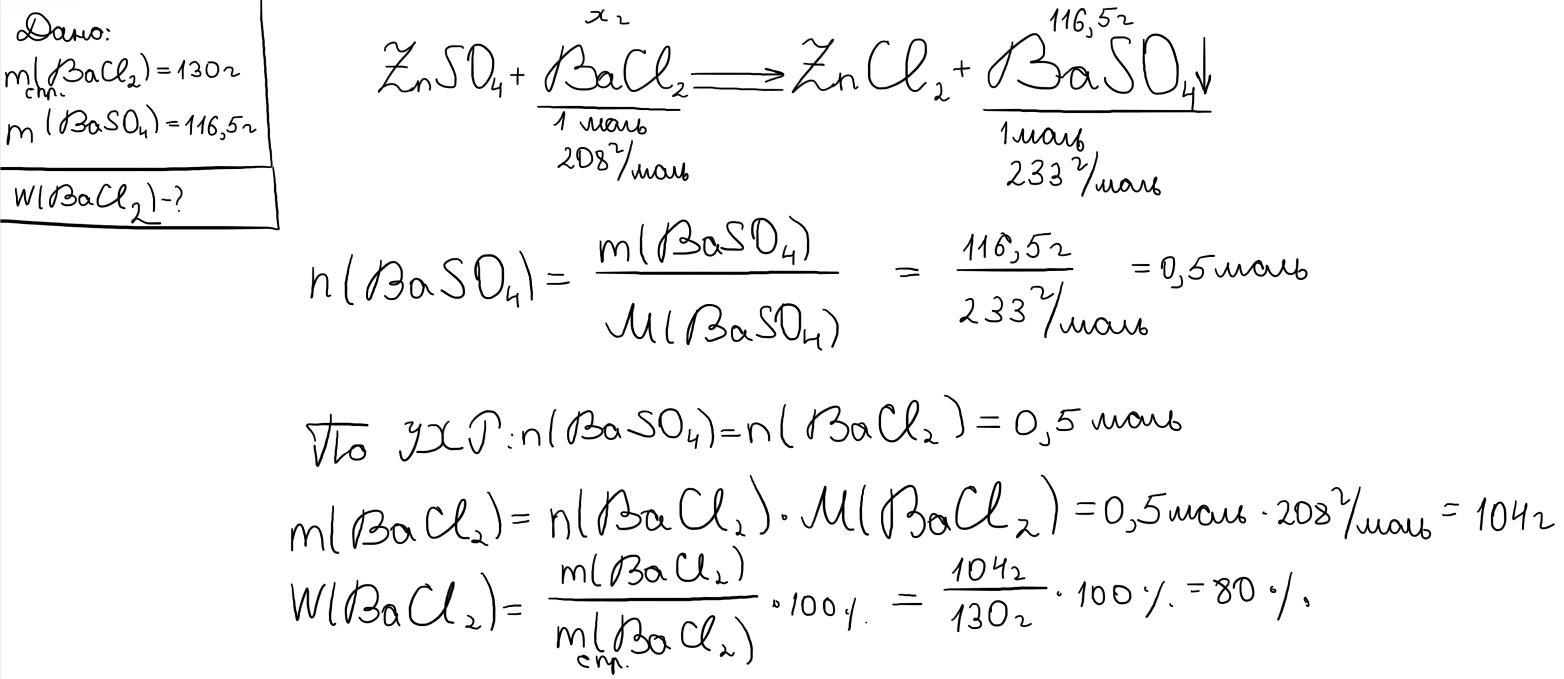 Дано:
m стр. (BaCl₂) = 130г
m (BaSO₄) = 116,5г
W(BaCl₂) - ?
x г 116,5г
ZnSO₄ + BaCl₂ ⟹ ZnCl₂ + BaSO₄↓
1 моль 1 моль
208 г/моль 233 г/моль
n(BaSO₄) = m(BaSO₄) / M(BaSO₄) = 116,5г / 233 г/моль = 0,5 моль
По УХР: n(BaSO₄) = n(BaCl₂) = 0,5 моль
m(BaCl₂) = n(BaCl₂) · M(BaCl₂) = 0,5 моль · 208 г/моль = 104г
W(BaCl₂) = m(BaCl₂) / m стр. (BaCl₂) · 100% = 104г / 130г · 100% = 80%.